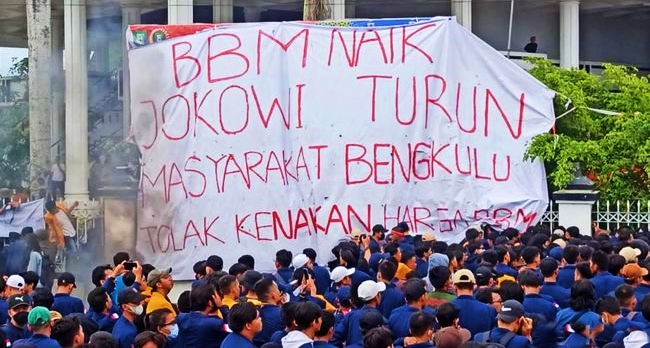 BBM NAIK
JOKOWI TURUN
MASYARAKAT BENGKULU
TOLAK KENAKAN HARGA BBM